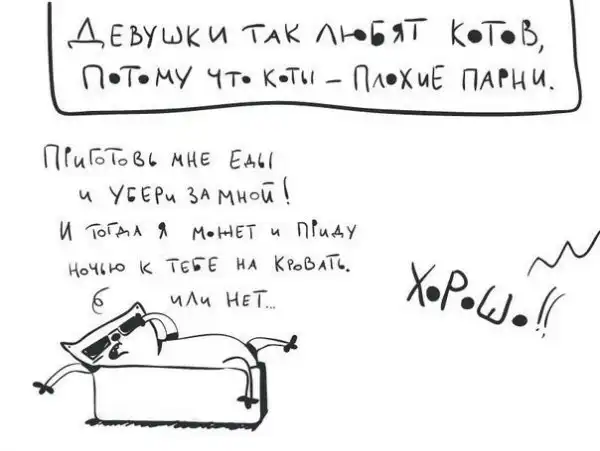 Девушки так любят котов,
потому что коты – плохие парни.
Приготовь мне еды
и убери за мной!
И тогда я может и приду
ночью к тебе на кровать.
или нет...
Хорошо!!